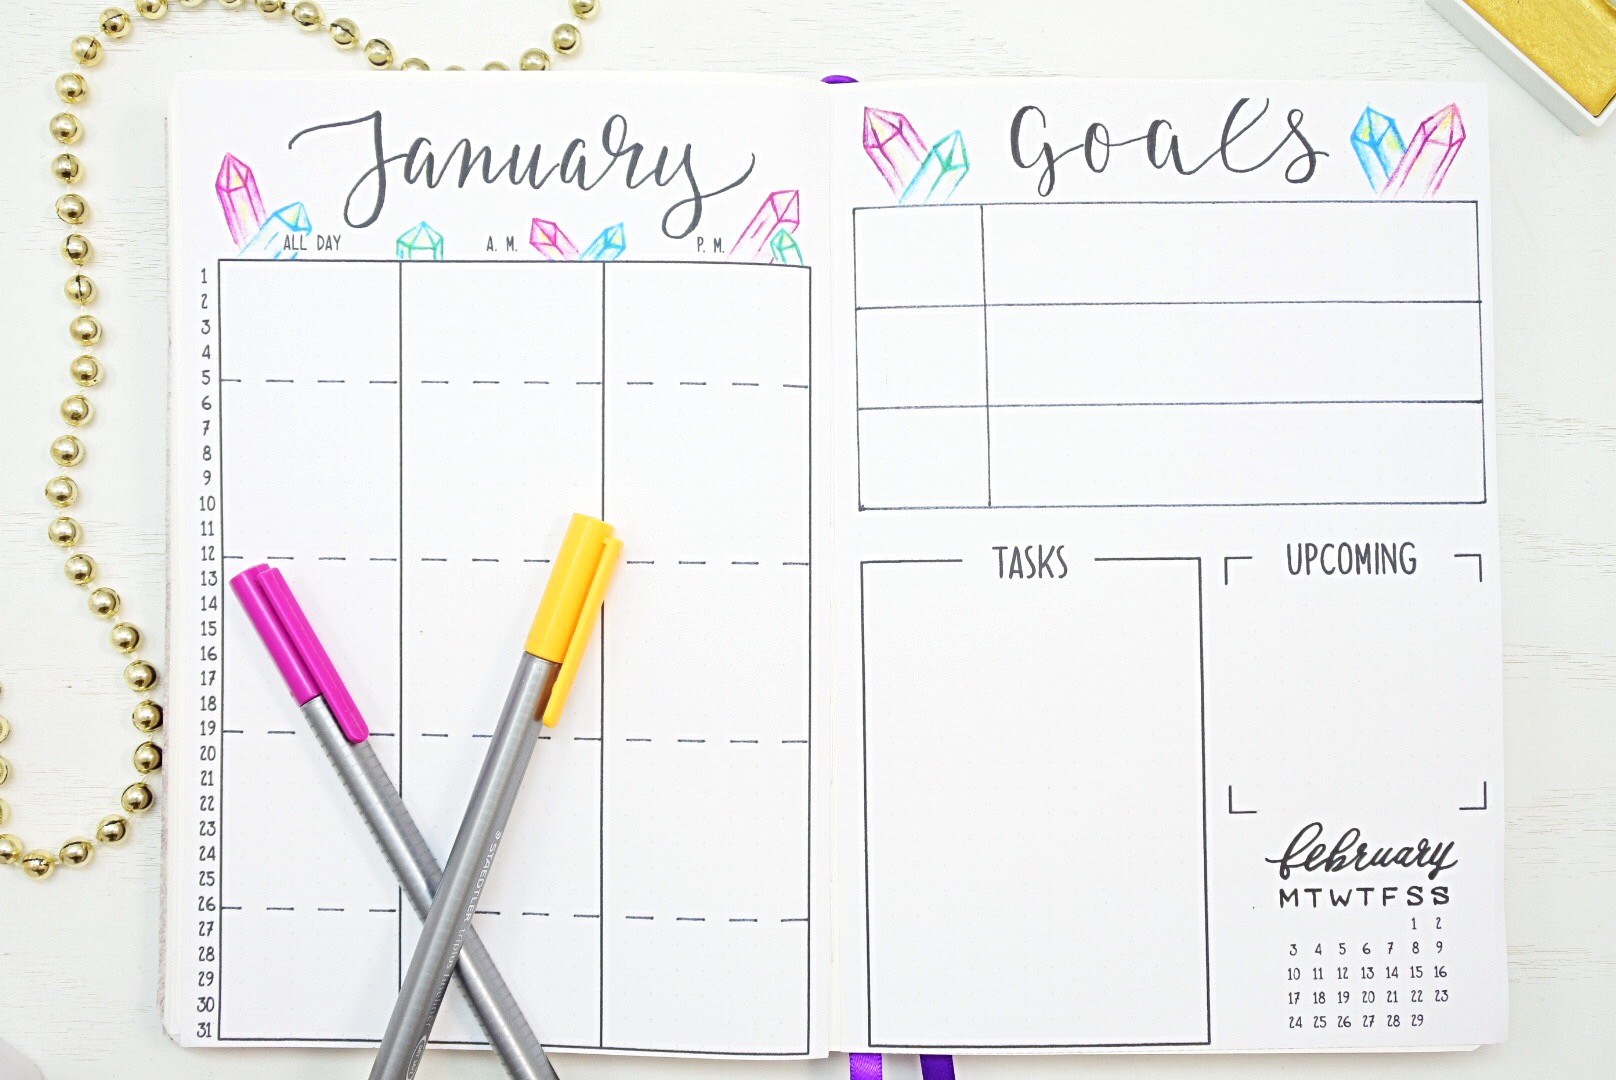 January
ALL DAY A. M. P. M.
1
2
3
4
5
6
7
8
9
10
11
12
13
14
15
16
17
18
19
20
21
22
23
24
25
26
27
28
29
30
31
Goals
TASKS
UPCOMING
february
M T W T F S S
1 2
3 4 5 6 7 8 9
10 11 12 13 14 15 16
17 18 19 20 21 22 23
24 25 26 27 28 29
STAEDTLER triplus fineliner